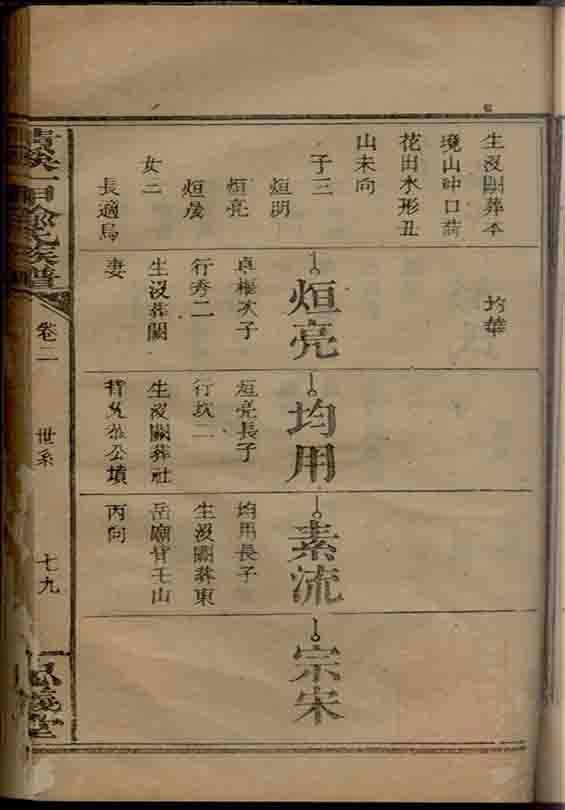 生沒闕葬本
境山冲口荷
花田水形丑
山未向
子三
烜明
烜亮
烜晟
女二
長適馬
均華
烜亮
卓樞次子
行秀二
生沒葬闕
妻
均用
烜亮長子
行玖二
生沒闕葬社
背允恭公墳
素流
均用長子
生沒闕葬東
岳廟背壬山
丙向
宗宋
氏族譜
卷二
世系
七九
義堂